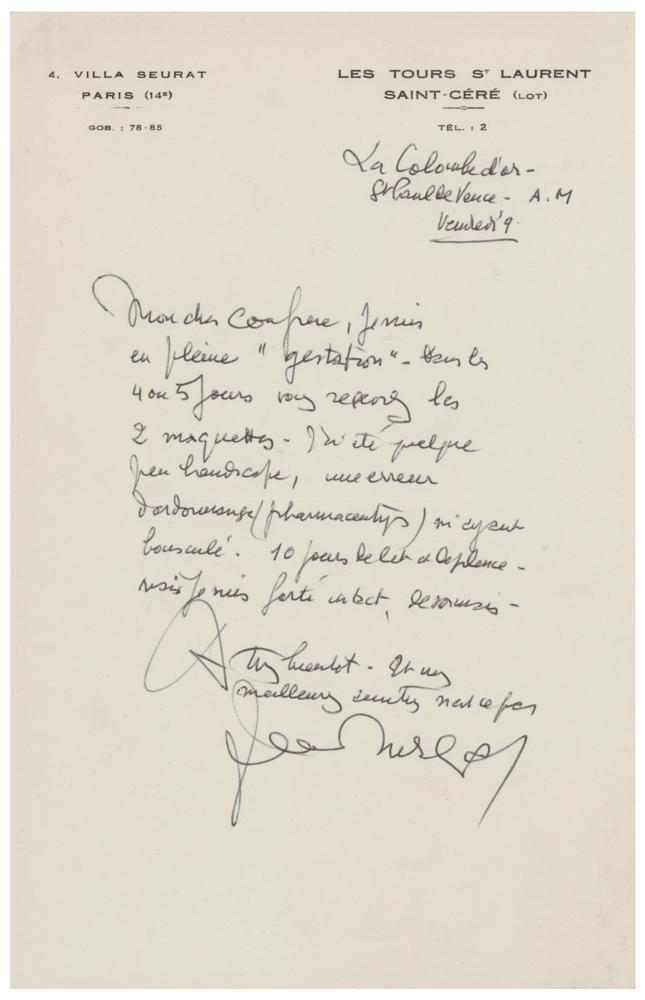 4. VILLA SEURAT
PARIS (14ᴱ)
GOB. : 78-85
LES TOURS Sᵀ LAURENT
SAINT-CÉRÉ (LOT)
TÉL. : 2
La Colombe d'or -
St Paul de Vence - A.M
Vendredi 9
Mon cher Confrere, je suis
en pleine "gestation" - Dans les
4 ou 5 jours vous recevrez les
2 maquettes - J'ai été quelque
peu handicapé, une erreur
d'ordonnance (pharmaceutique) m'ayant
bousculé. 10 jours de lit
mais je suis intact, desormais -
A très bientot - Et mes
meilleurs n'est ce pas
Jean Lurçat